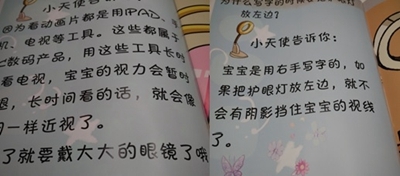 小天使告诉你
因为看动画片都是用PAD、手
机、电视等工具。这些都属于
数码产品，用这些工具长时
看电视，宝宝的视力会暂时
退，长时间看的话，就会像
的一样近视了。
了就要戴大大的眼镜了哦
为什么写字的时候
放左边？
小天使告诉你：
宝宝是用右手写字的，如
果把护眼灯放左边，就不
会有阴影挡住宝宝的视线
了。